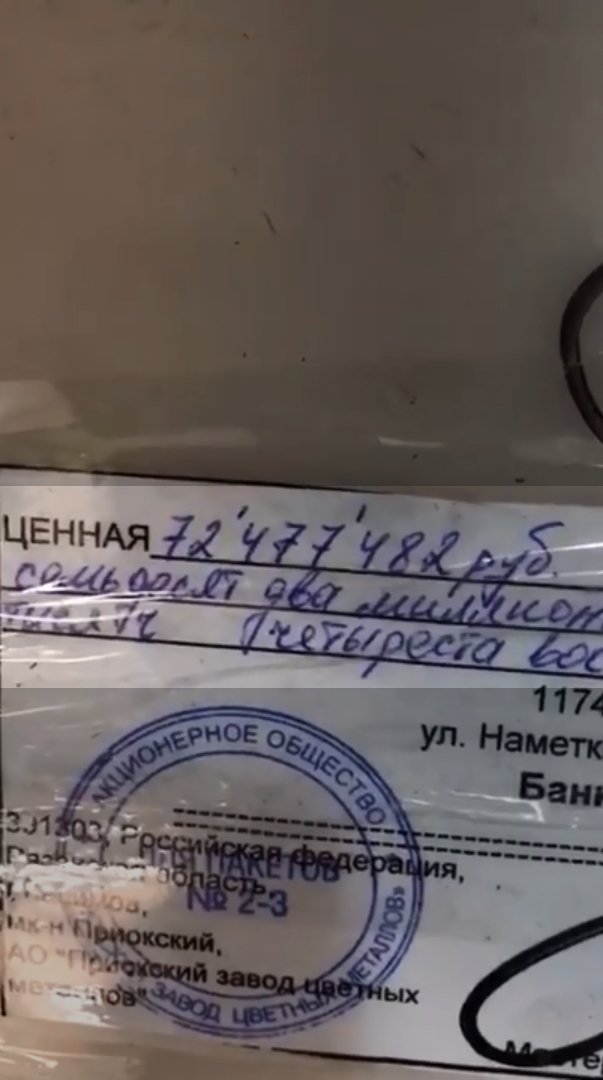 ЦЕННАЯ 72'477'482 руб.
семьдесят два
четыреста
1174
ул. Наметк
Банк
АКЦИОНЕРНОЕ ОБЩЕСТВО
ДЛЯ ПАКЕТОВ
№ 2-3
ЗАВОД ЦВЕТНЫХ МЕТАЛЛОВ»
Российская федерация,
область,
мк-н Приокский,
АО "Приокский завод цветных
металлов"